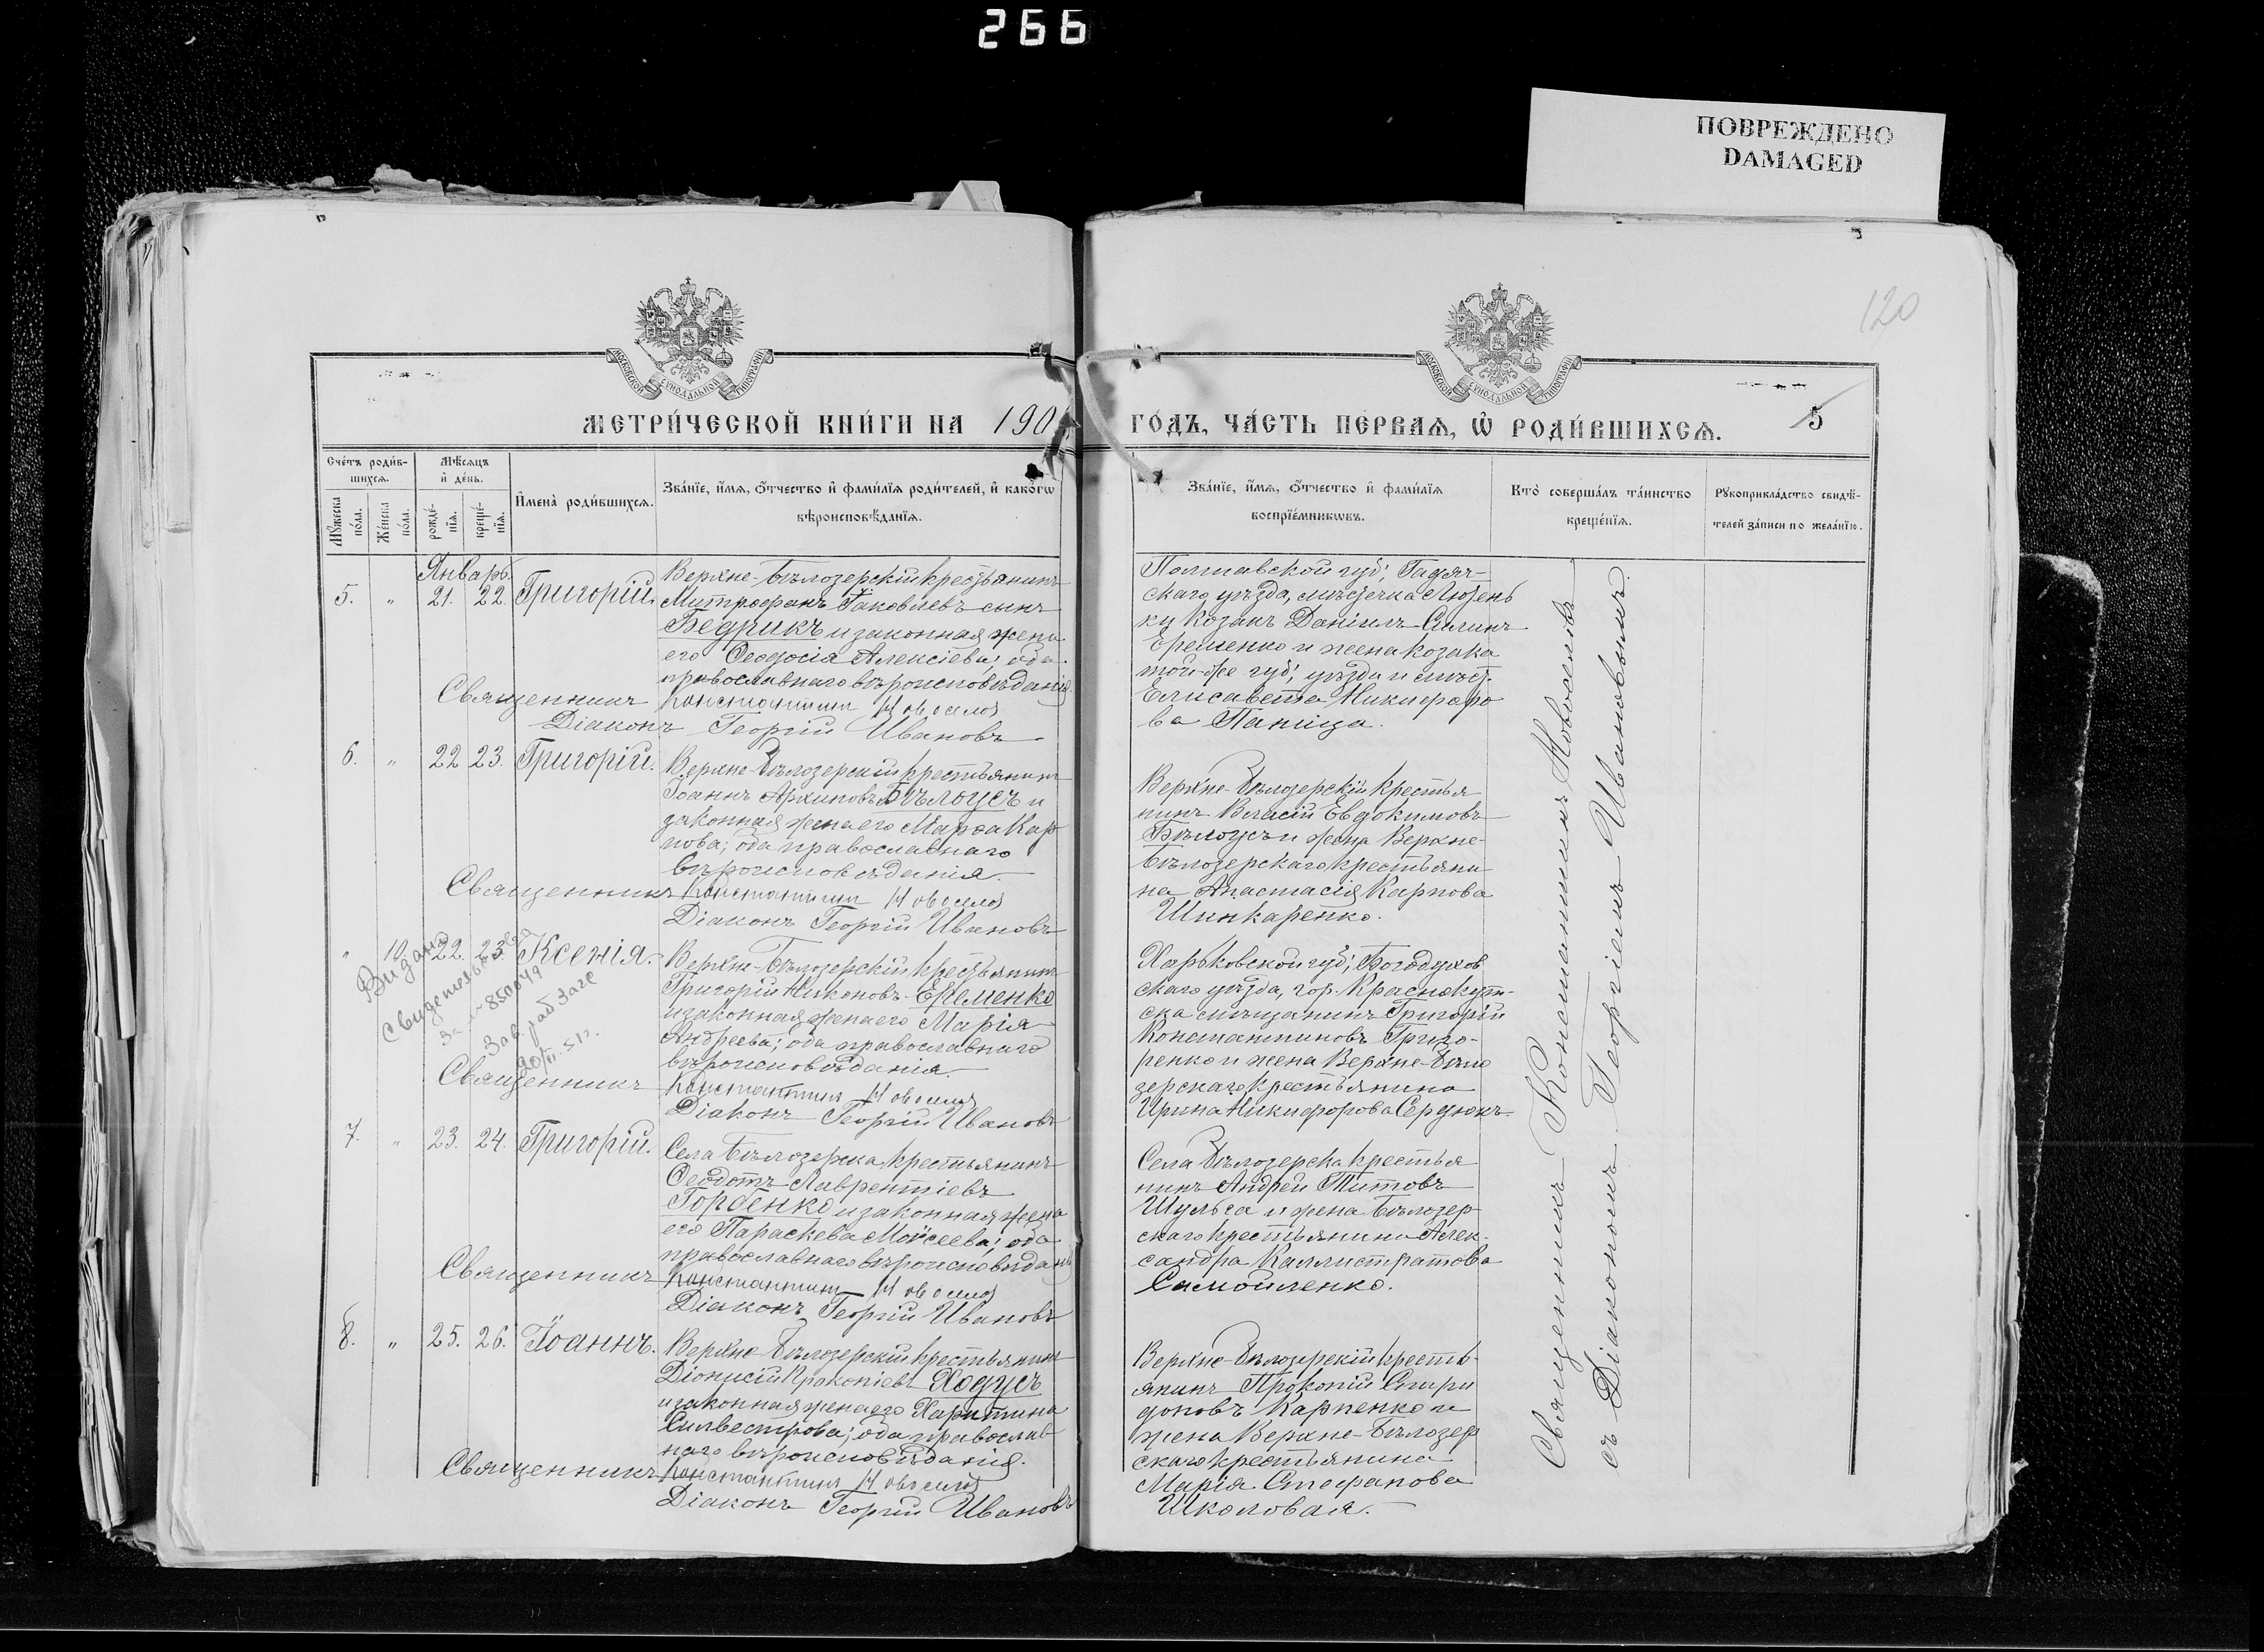 266
ПОВРЕЖДЕНО
DAMAGED
120
МОСКОВСКОЙ СѴНОДАЛЬНОЙ ТИПОГРАФІИ
МОСКОВСКОЙ СѴНОДАЛЬНОЙ ТИПОГРАФІИ
МЕТРИ́ЧЕСКОЙ КНИ́ГИ НА 190
ГО́ДЪ, ЧА́СТЬ ПЕ́РВАѦ, Ѡ҆ РОДИ́ВШИХСѦ.
5
Сче́тъ роди́в-
шихсѧ.
Мѣ́сѧцъ
и҆ де́нь.
Мꙋ́жеска
по́ла.
Же́нска
по́ла.
рожде́-
нїѧ.
креще́-
нїѧ.
И҆мена̀ роди́вшихсѧ.
Зва́нїе, и҆́мѧ, ѻ҆́тчество и҆ фами́лїѧ роди́телей, и҆ како́гѡ
вѣроисповѣ́данїѧ.
Зва́нїе, и҆́мѧ, ѻ҆́тчество и҆ фами́лїѧ
воспрїе́мникѡвъ.
Кто̀ соверша́лъ та́инство
креще́нїѧ.
Рꙋкоприкла́дство свидѣ́-
телей за́писи по жела́нїю.
Январь.
5. " 21. 22. Григорій.
Верхне-Бѣлозерскій крестьянинъ
Митрофанъ Іаковлевъ сынъ
Бедрикъ и законная жена
его Ѳеодосія Алексіева; оба
православнаго вѣроисповѣданія.
Священникъ Константинъ Новоселов
Діаконъ Георгій Ивановъ
Полтавской губ., Гадяч-
скаго уѣзда, мѣстечка Лютень
ки козакъ Даніилъ Силинъ
Еременко и жена козака
той-же губ., уѣзда и мѣст.
Елисавета Никифоро
ва Паница.
6. " 22 23. Григорій.
Верхне-Бѣлозерскій крестьянинъ
Іоаннъ Архиповъ Бѣлоусъ и
законная жена его Марѳа Кар
пова; оба православнаго
вѣроисповѣданія.
Священникъ Константинъ Новоселов
Діаконъ Георгій Ивановъ
Верхне-Бѣлозерскій крестья
нинъ Власій Евдокимовъ
Бѣлоусъ и жена Верхне-
Бѣлозерскаго крестьяни
на Анастасія Карпова
Шинкаренко.
" 10. 22. 23. Ксенія.
Видано
Свидетельство
Зав. раб Загс
Верхне-Бѣлозерскій крестьянинъ
Григорій Никоновъ Еременко
и законная жена его Марія
Андреева; оба православнаго
вѣроисповѣданія.
Священникъ Константинъ Новоселов
Діаконъ Георгій Ивановъ
Харьковской губ., Богодухов
скаго уѣзда, гор. Краснокут-
ска мѣщанинъ Григорій
Константиновъ Григо-
ренко и жена Верхне-Бѣло
зерскаго крестьянина
Ирина Никифорова Сердюкъ.
7. " 23. 24. Григорій.
Села Бѣлозерка крестьянинъ
Ѳеодотъ Лаврентіевъ
Горбенко и законная жена
его Параскева Моисеева; оба
православнаго вѣроисповѣдані
Священникъ Константинъ Новоселов
Діаконъ Георгій Ивановъ
Села Бѣлозерска крестья
нинъ Андрей Титовъ
Шульга и жена Бѣлозер-
скаго крестьянина Алек-
сандра Каллистратова
Самойленко.
8. " 25. 26. Іоаннъ.
Верхне-Бѣлозерскій крестьянинъ
Діонисій Прокопіевъ Ходусъ
и законная жена его Харитина
Силвестрова; оба православ-
наго вѣроисповѣданія.
Священникъ Константинъ Новоселов
Діаконъ Георгій Ивановъ
Верхне-Бѣлозерскій кресть-
янинъ Прокопій Спири
доновъ Карпенко и
жена Верхне-Бѣлозер
скаго крестьянина
Марія Стефанова
Школовая.
Священникъ Константинъ Новоселовъ
съ Діакономъ Георгіемъ Ивановымъ.